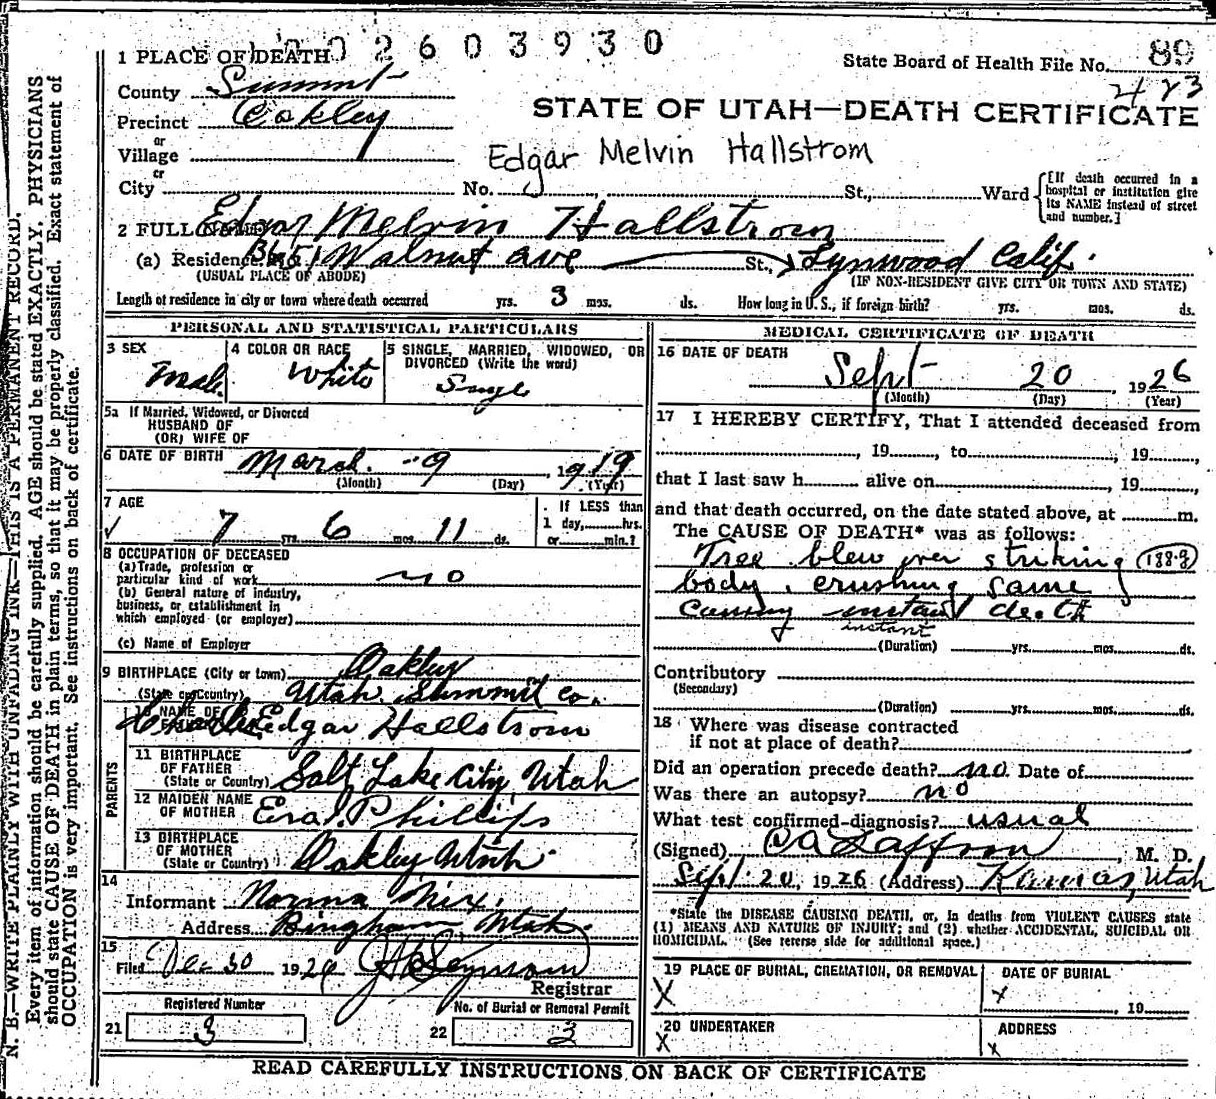 2603930
1 PLACE OF DEATH
State Board of Health File No. 89
423
County Summit
STATE OF UTAH—DEATH CERTIFICATE
Precinct Oakley
or
Village
Edgar Melvin Hallstrom
or
City No. St., Ward
[If death occurred in a hospital or institution give its NAME instead of street and number.]
2 FULL NAME Edgar Melvin Hallstrom
(a) Residence. No. Walnut Ave St., Lynwood Calif.
(USUAL PLACE OF ABODE) (IF NON-RESIDENT GIVE CITY OR TOWN AND STATE)
Length of residence in city or town where death occurred yrs. 3 mos. ds. How long in U. S., if foreign birth? yrs. mos. ds.
PERSONAL AND STATISTICAL PARTICULARS
3 SEX Male
4 COLOR OR RACE White
5 SINGLE, MARRIED, WIDOWED, OR DIVORCED (Write the word) Single
5a If Married, Widowed, or Divorced
HUSBAND OF
(OR) WIFE OF
6 DATE OF BIRTH March 9, 1919
(Month) (Day) (Year)
7 AGE
7 yrs. 6 mos. 11 ds.
If LESS than
1 day, hrs.
or min.?
8 OCCUPATION OF DECEASED
(a) Trade, profession or
particular kind of work no
(b) General nature of industry,
business, or establishment in
which employed (or employer)
(c) Name of Employer
9 BIRTHPLACE (City or town) Oakley
(State or Country) Utah Summit Co.
PARENTS
10 NAME OF FATHER Charles Edgar Hallstrom
11 BIRTHPLACE
OF FATHER
(State or Country) Salt Lake City Utah
12 MAIDEN NAME
OF MOTHER Phillips
13 BIRTHPLACE
OF MOTHER
(State or Country) Oakley Utah
14
Informant Norma Mix
Address Bingham Utah.
15
Filed Dec 30 1926
Registrar
Registered Number
21 3
No. of Burial or Removal Permit
22 3
MEDICAL CERTIFICATE OF DEATH
16 DATE OF DEATH
Sept 20 1926
(Month) (Day) (Year)
17 I HEREBY CERTIFY, That I attended deceased from
, 19, to , 19,
that I last saw h alive on , 19,
and that death occurred, on the date stated above, at m.
The CAUSE OF DEATH* was as follows:
Tree blew over striking
body, crushing same
causing instant death
instant
(Duration) yrs. mos. ds.
Contributory
(Secondary)
(Duration) yrs. mos. ds.
18 Where was disease contracted
if not at place of death?
Did an operation precede death? no Date of
Was there an autopsy? no
What test confirmed diagnosis? usual
(Signed) , M. D.
Sept. 20, 1926 (Address) Kamas, Utah
*State the DISEASE CAUSING DEATH, or, in deaths from VIOLENT CAUSES state
(1) MEANS AND NATURE OF INJURY; and (2) whether ACCIDENTAL, SUICIDAL OR
HOMICIDAL. (See reverse side for additional space.)
19 PLACE OF BURIAL, CREMATION, OR REMOVAL
X
DATE OF BURIAL
x , 19
20 UNDERTAKER
X
ADDRESS
x
READ CAREFULLY INSTRUCTIONS ON BACK OF CERTIFICATE
N. B.—WRITE PLAINLY WITH UNFADING INK—THIS IS A PERMANENT RECORD.
Every item of information should be carefully supplied. AGE should be stated EXACTLY. PHYSICIANS
should state CAUSE OF DEATH in plain terms, so that it may be properly classified. Exact statement of
OCCUPATION is very important. See instructions on back of certificate.